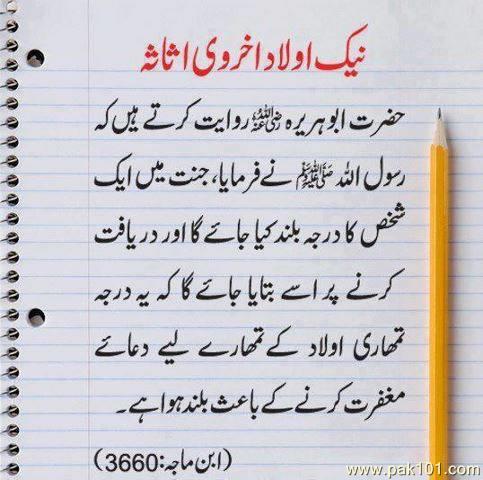 نیک اولاد اخروی اثاثہ
حضرت ابوہریرہ رضی اللہ عنہ روایت کرتے ہیں کہ
رسول اللہ ﷺ نے فرمایا، جنت میں ایک
شخص کا درجہ بلند کیا جائے گا اور دریافت
کرنے پر اسے بتایا جائے گا کہ یہ درجہ
تمھاری اولاد کے تمھارے لیے دعائے
مغفرت کرنے کے باعث بلند ہوا ہے۔
(ابن ماجہ: 3660)
www.pak101.com